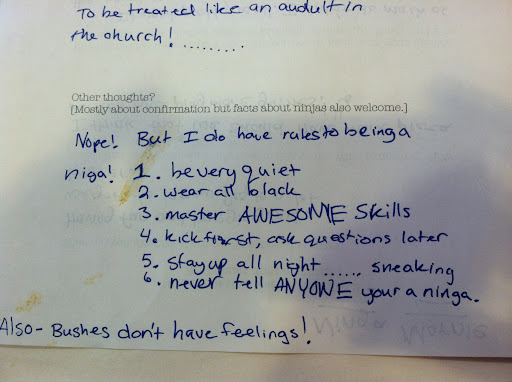 To be treated like an audult in
the church! .........
Other thoughts?
[Mostly about confirmation but facts about ninjas also welcome.]
Nope! But I do have rules to being a
niga! 1. be very quiet
2. wear all black
3. master AWESOME Skills
4. kick first, ask questions later
5. stay up all night ...... sneaking
6. never tell ANYONE your a ninga.
Also - Bushes don't have feelings!